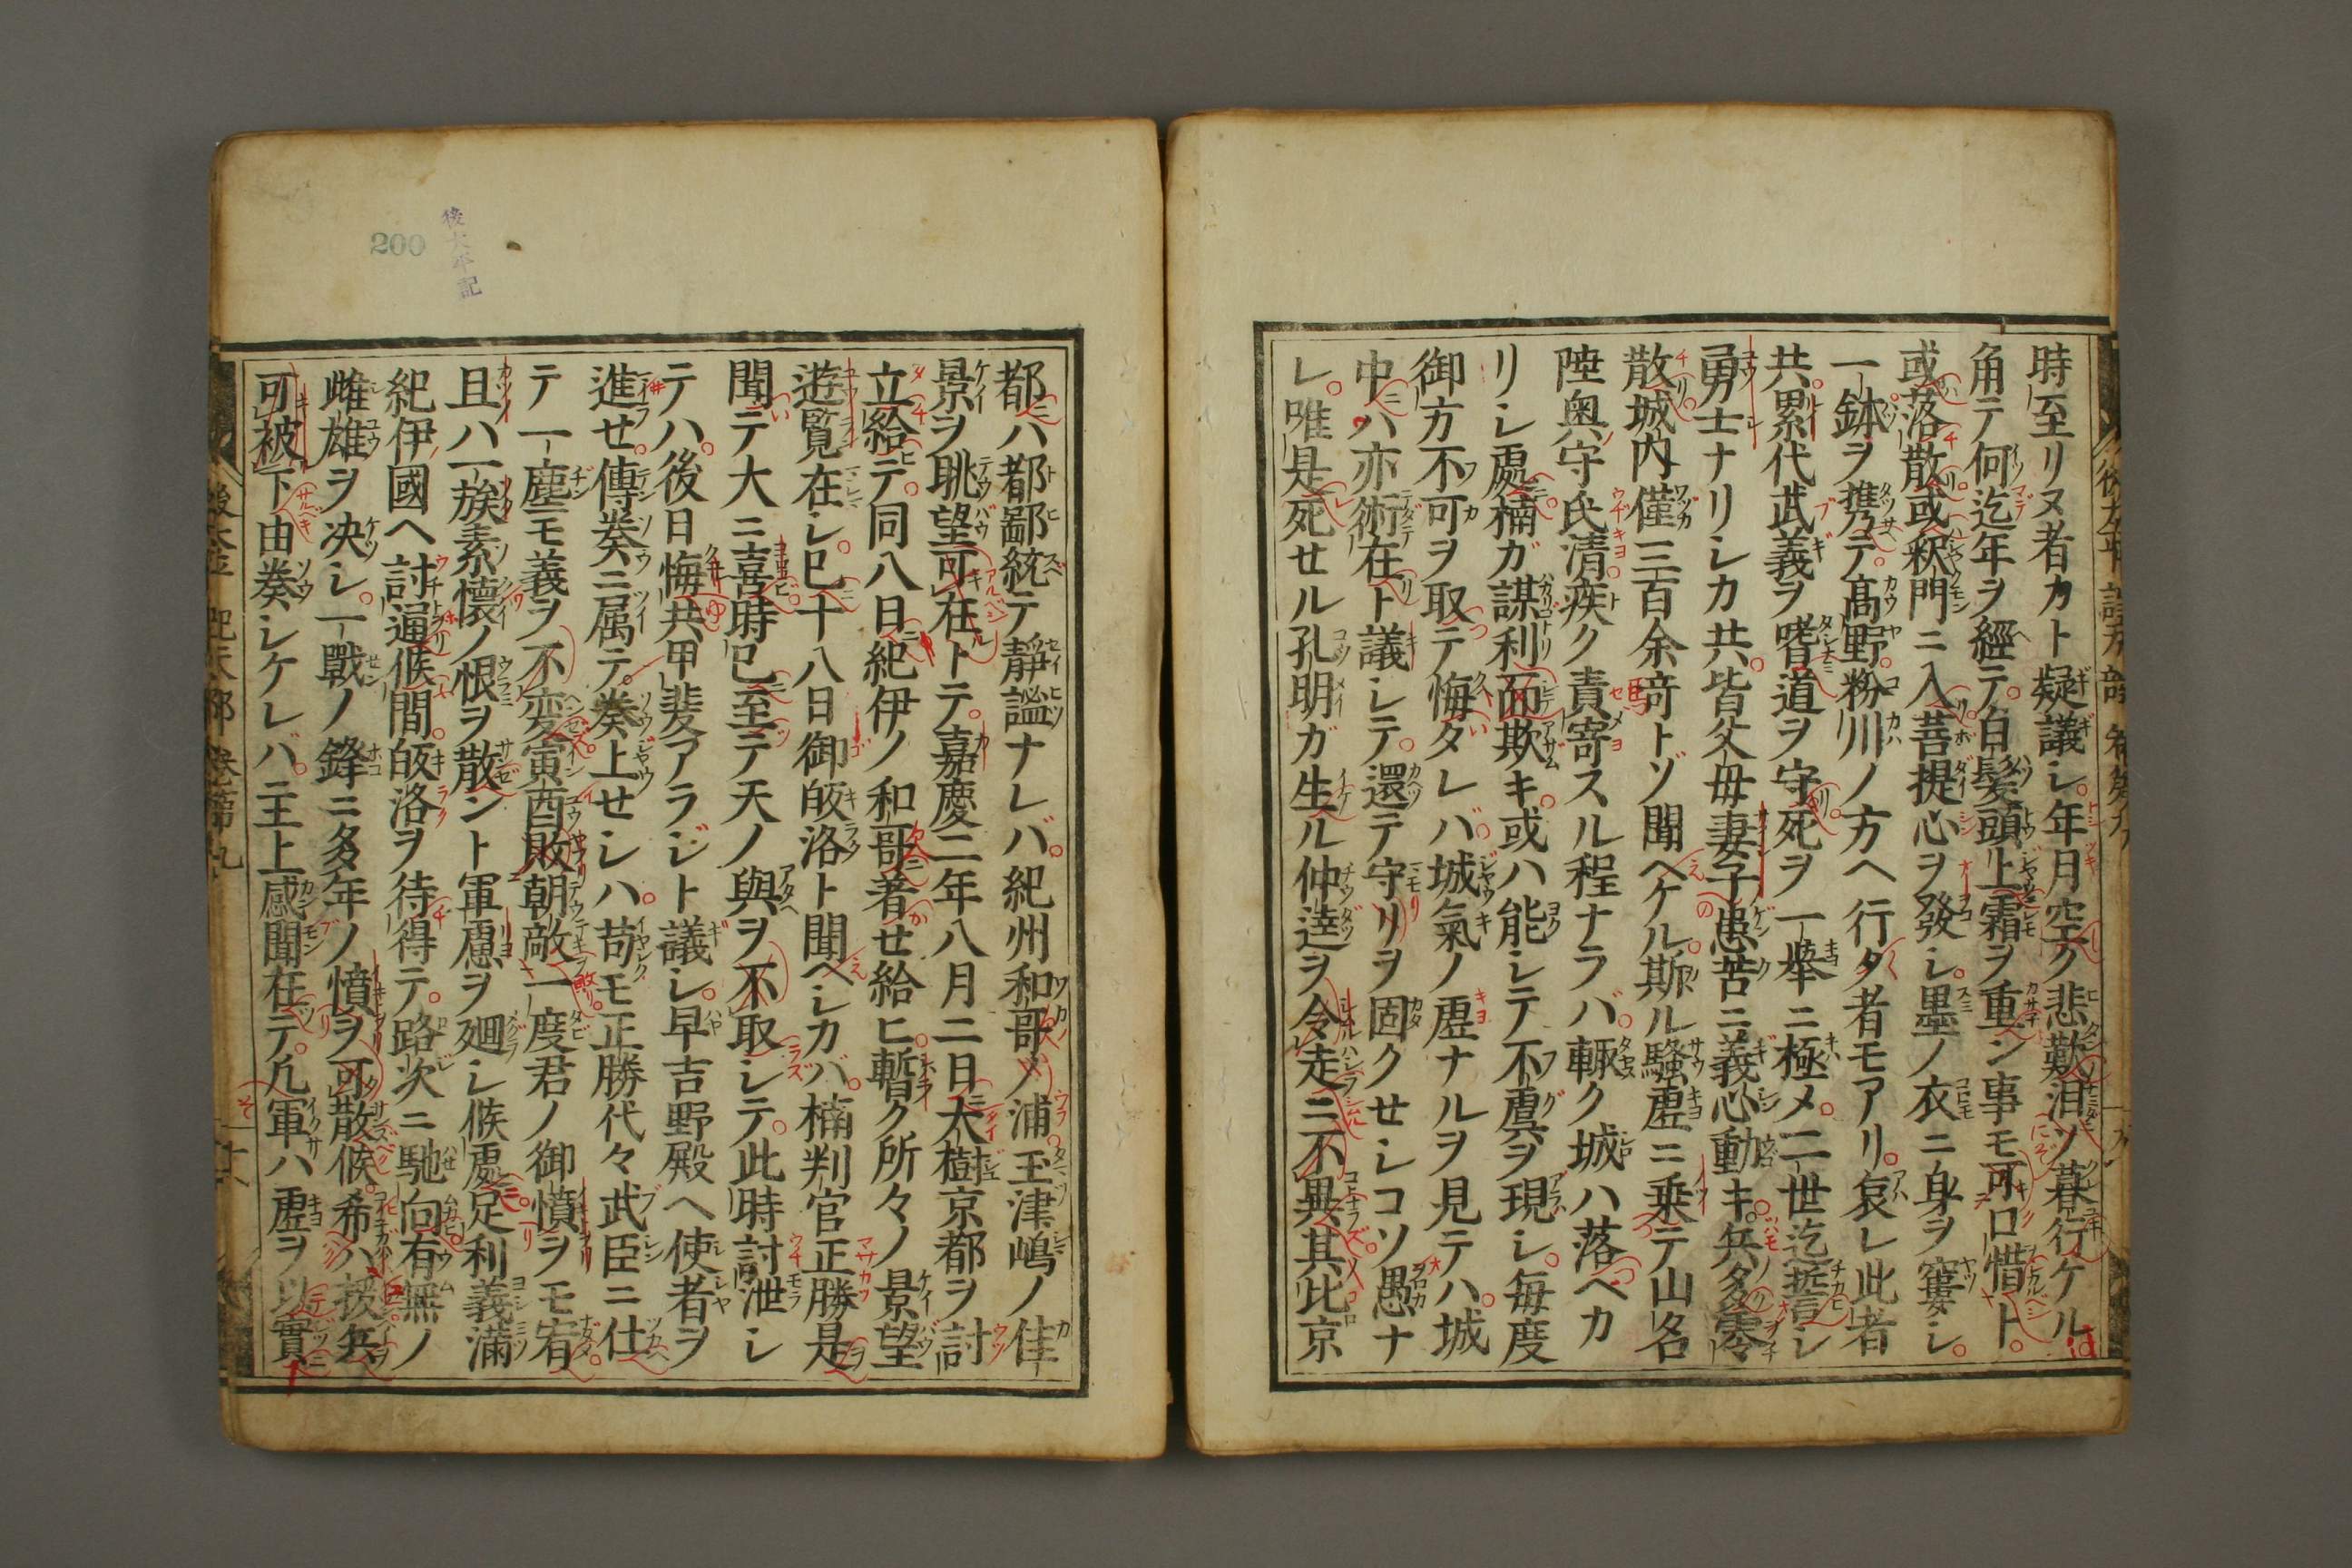 時至リヌ者カト疑議シ。年月空ク悲歎泪ソ暮行ケル
角テ何迄年ヲ經テ。白髪頭上霜ヲ重ン事モ可口惜ト。
或落散或釈門ニ入菩提心ヲ發シ。墨ノ衣ニ身ヲ窶シ。
一鉢ヲ携テ。髙野。粉川ノ方ヘ行タ者モアリ。哀レ此者
共。累代武義ヲ嗜道ヲ守死ヲ一擧ニ極メ。二世迄誓シ
勇士ナリシカ共。皆父母妻子患苦ニ義心動キ。兵多零
散。城内僅三百余竒トゾ聞ヘケル。斯ル騷虛ニ乗テ山名
陸奥守氏清疾ク責寄スル程ナラバ。輙ク城ハ落ヘカ
リシ處。楠ガ謀利而欺キ。或ハ能シテ不虞ヲ現シ。毎度
御方不可ヲ取テ悔タレバ。城氣ノ虛ナルヲ見テハ。城
中ハ亦術在ト議シテ。還テ守リヲ固クせシコソ愚ナ
レ。唯是死せル孔明ガ生ル仲達ヲ令走ニ不異。其比京
都ハ都鄙統テ靜謐ナレバ。紀州和哥ノ浦。玉津嶋ノ佳
景ヲ眺望可在トテ。嘉慶二年八月二日大樹京都ヲ討
立給テ。同八日紀伊ノ和哥著せ給ヒ暫ク所々ノ景望
遊覧在シ。已十八日御皈洛ト聞ヘシカバ。楠判官正勝是
聞テ大ニ喜。時已至テ天ノ與ヲ不取シテ。此時討泄シ
テハ。後日悔共甲斐アラジト議シ。早吉野殿ヘ使者ヲ
進せ。傳奏ニ属テ。奏上せシハ。苟モ正勝代々武臣ニ仕
テ一塵モ義ヲ不変。寅酉敗朝敵一度君ノ御憤ヲモ宥。
且ハ一族素懷ノ恨ヲ散ント軍慮ヲ廻シ候處。足利義滿
紀伊國ヘ討逼候間。皈洛ヲ待得テ。路次ニ馳向有無ノ
雌雄ヲ决シ。一戰ノ鋒ニ多年ノ憤ヲ可散候。希ハ援兵
可被下由奏シケレバ。主上感聞在テ。凡軍ハ虛ヲ以實
200
後太平記
後太平記 卷第九